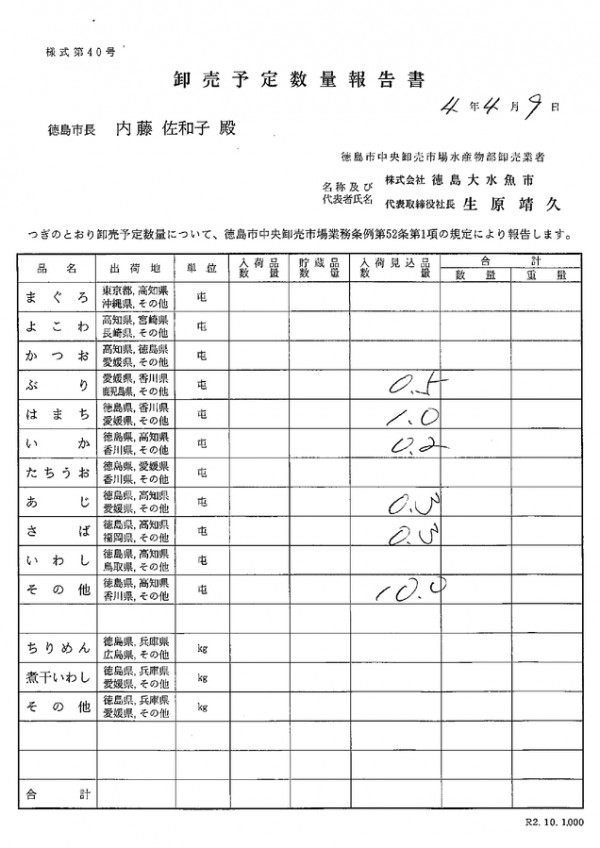 様式第40号
卸売予定数量報告書
4年4月9日
徳島市長 内藤 佐和子 殿
徳島市中央卸売市場水産物部卸売業者
名称及び 株式会社 徳島大水魚市
代表者氏名 代表取締役社長 生原靖久
つぎのとおり卸売予定数量について、徳島市中央卸売市場業務条例第52条第1項の規定により報告します。
品名 出荷地 単位 入荷品数量 貯蔵品数量 入荷見込品数量 合計
数量 重量
まぐろ 東京都,高知県 沖縄県,その他 屯
よこわ 高知県,宮崎県 長崎県,その他 屯
かつお 高知県,徳島県 愛媛県,その他 屯
ぶり 愛媛県,香川県 鹿児島県,その他 屯 0.5
はまち 徳島県,香川県 愛媛県,その他 屯 1.0
いか 徳島県,高知県 香川県,その他 屯 0.2
たちうお 徳島県,愛媛県 香川県,その他 屯
あじ 徳島県,高知県 愛媛県,その他 屯 0.3
さば 徳島県,高知県 福岡県,その他 屯 0.3
いわし 徳島県,高知県 鳥取県,その他 屯
その他 徳島県,高知県 香川県,その他 屯 10.0
ちりめん 徳島県,兵庫県 広島県,その他 kg
煮干いわし 徳島県,兵庫県 愛媛県,その他 kg
その他 徳島県,兵庫県 愛媛県,その他 kg
合計
R2.10.1,000